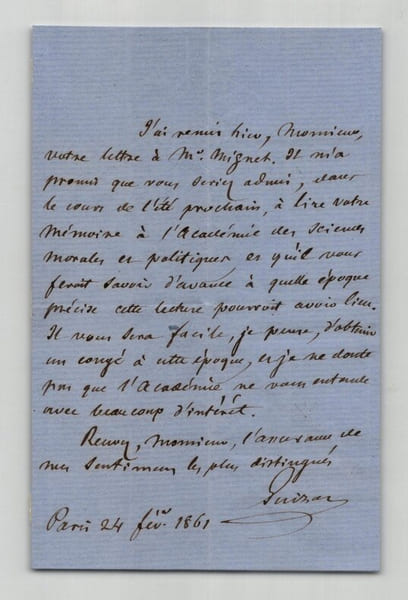 J'ai remis hier, Monsieur,
votre lettre à Mr. Mignet. Il m'a
promis que vous seriez admis, dans
le cours de l'été prochain, à lire votre
Mémoire à l'Académie des Sciences
morales et politiques et qu'il vous
feroit savoir d'avance à quelle époque
précise cette lecture pourroit avoir lieu.
Il vous sera facile, je pense, d'obtenir
un congé à cette époque, et je ne doute
pas que l'Académie ne vous entende
avec beaucoup d'intérêt.
Recevez, Monsieur, l'assurance de
mes sentimens les plus distingués
Guizot
Paris 24 févr. 1861